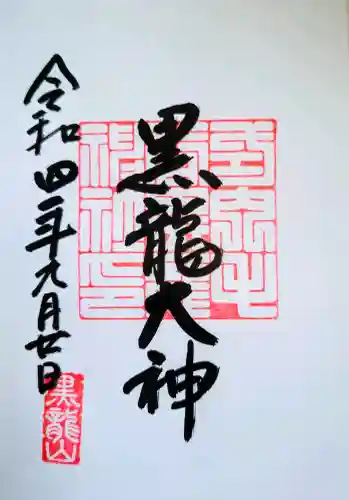 黒龍大神
令和四年九月廿日
黒龍山